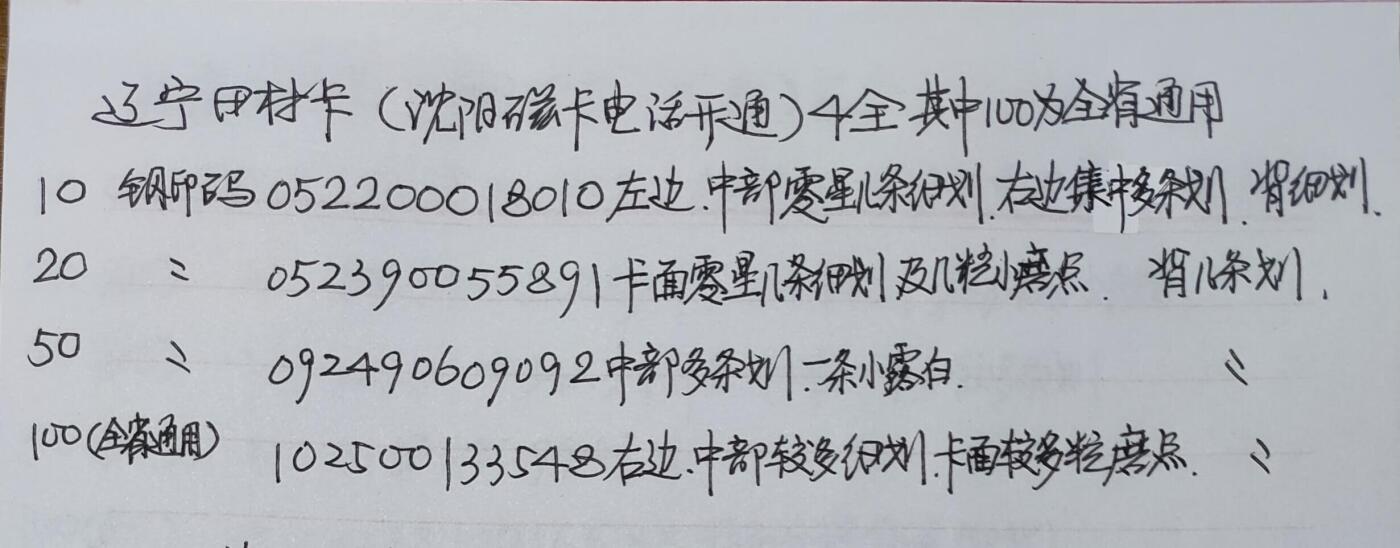 辽宁田村卡(沈阳磁卡电话开通)4全 其中100为全省通用
10 钢印码 052200018010 左边.中部零星几条细划.右边集中多条划.背细划.
20 〃 052390055891 卡面零星几条细划及几粒小磨点. 背几条划.
50 〃 092490609092 中部多条划.一条小露白. 〃
100(全省通用) 102500133548 右边.中部较多细划.卡面较多粒磨点. 〃